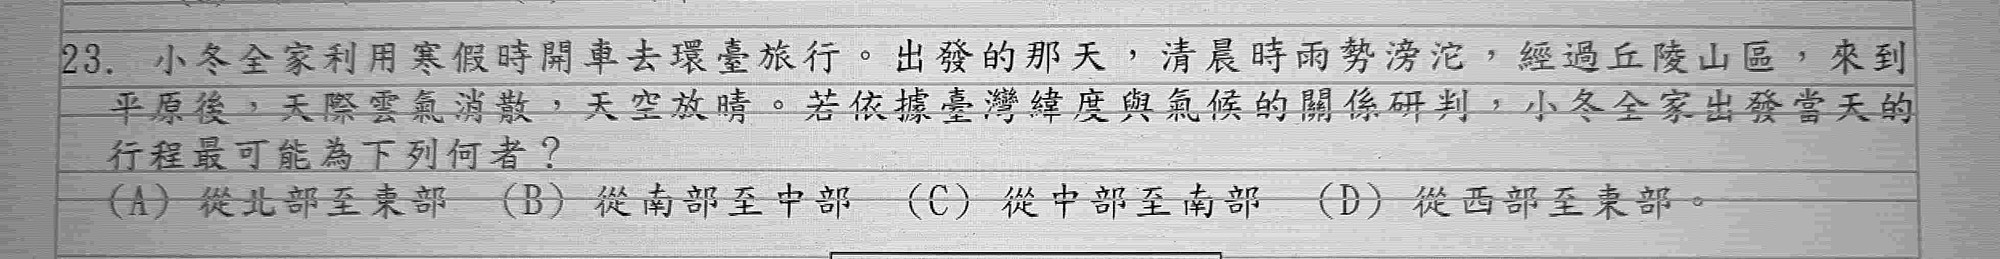 23. 小冬全家利用寒假時開車去環臺旅行。出發的那天，清晨時雨勢滂沱，經過丘陵山區，來到
平原後，天際雲氣消散，天空放晴。若依據臺灣緯度與氣候的關係研判，小冬全家出發當天的
行程最可能為下列何者？
(A) 從北部至東部 (B) 從南部至中部 (C) 從中部至南部 (D) 從西部至東部。